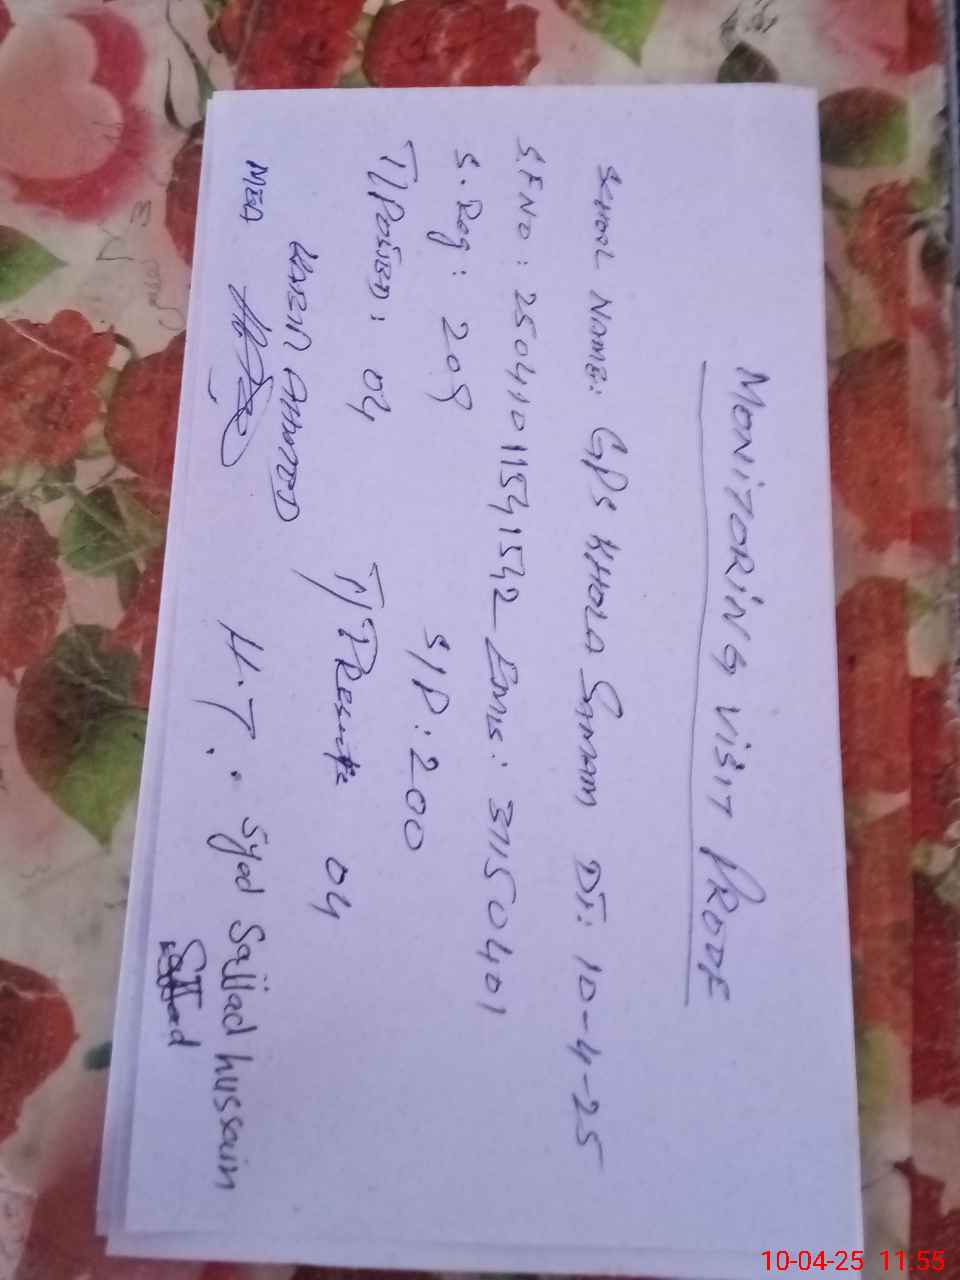 MONITORING VISIT PROOF
SCHOOL NAME: GPS KHOLA SANAM DT: 10-4-25
S.F NO: 25041011541542 Emis: 37150401
S. Reg: 209 S/P: 200
T/Posted: 04 T/Present: 04
AHMED
MEA H.T. Syed Sajjad hussain
10-04-25 11:55